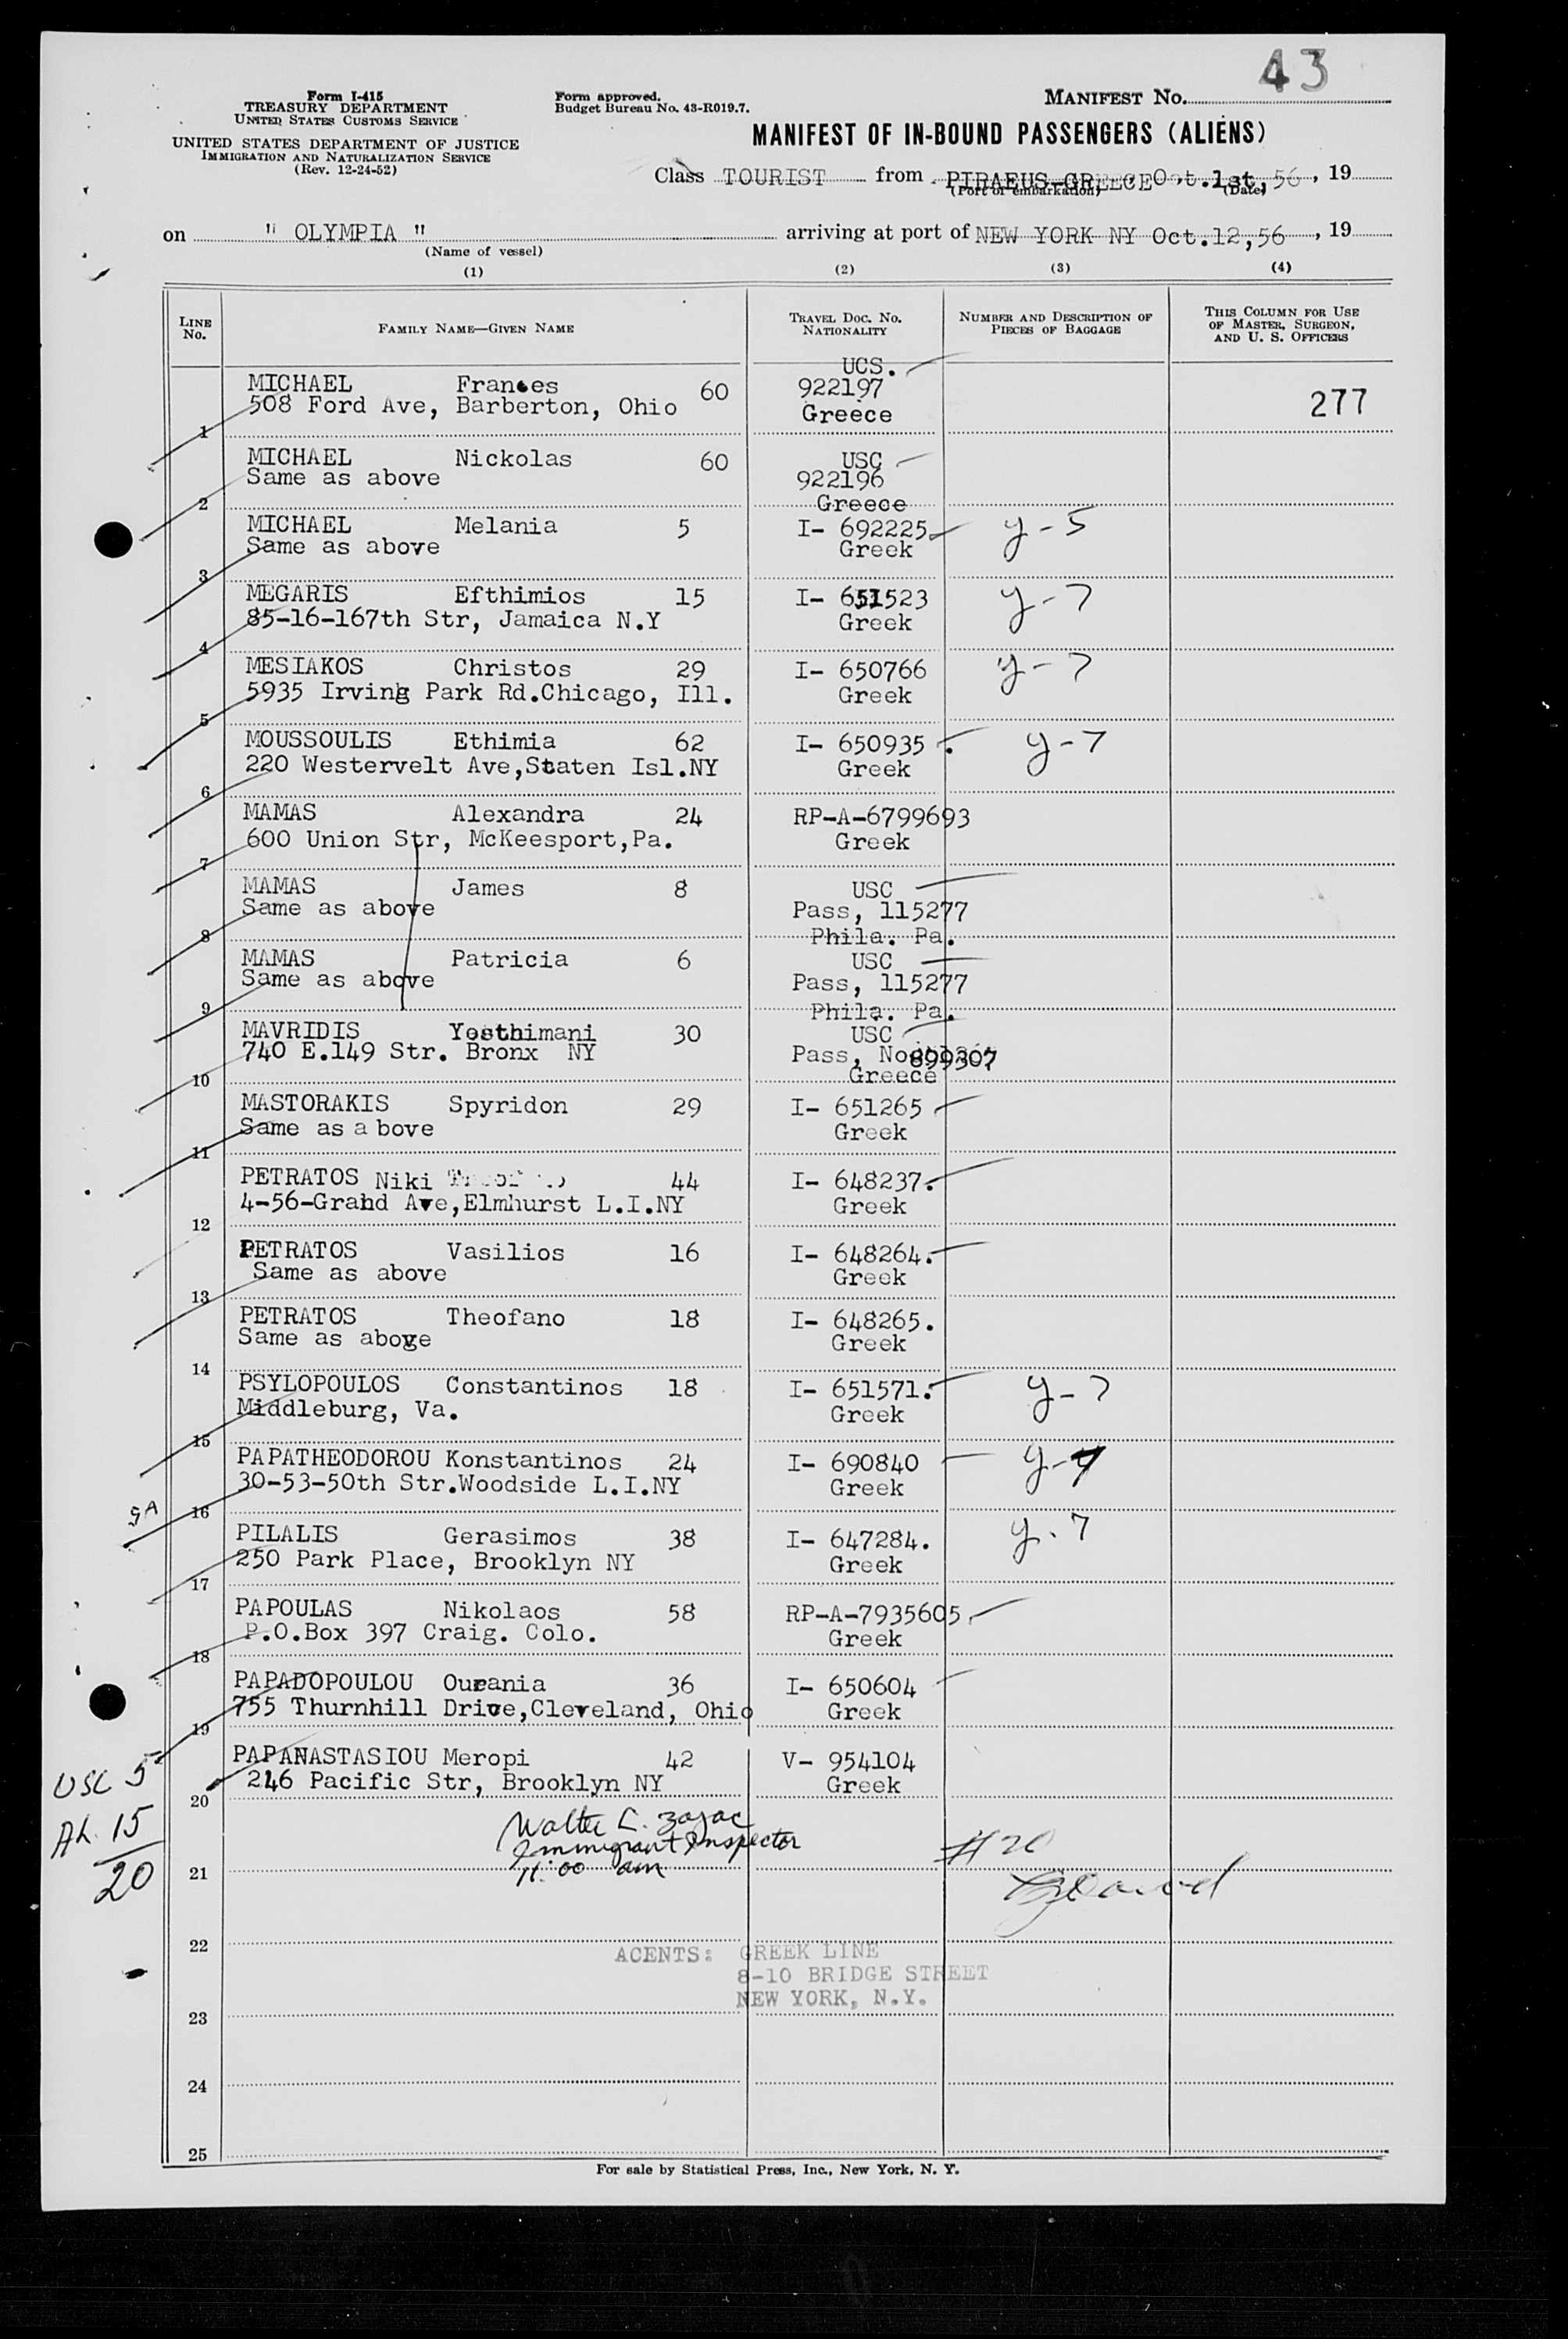 43
Form I-415
TREASURY DEPARTMENT
UNITED STATES CUSTOMS SERVICE
UNITED STATES DEPARTMENT OF JUSTICE
IMMIGRATION AND NATURALIZATION SERVICE
(Rev. 12-24-52)
Form approved.
Budget Bureau No. 43-R019.7.
MANIFEST NO.
MANIFEST OF IN-BOUND PASSENGERS (ALIENS)
Class TOURIST from PIRAEUS-GREECE Oct.1st,56, 19
(Port of embarkation) (Date)
on " OLYMPIA " arriving at port of NEW YORK NY Oct.12,56, 19
(Name of vessel)
(1) (2) (3) (4)
LINE NO. FAMILY NAME—GIVEN NAME TRAVEL DOC. NO. NATIONALITY NUMBER AND DESCRIPTION OF PIECES OF BAGGAGE THIS COLUMN FOR USE OF MASTER, SURGEON, AND U. S. OFFICERS
UCS.
MICHAEL Frances 60 922197 277
508 Ford Ave, Barberton, Ohio Greece
1
MICHAEL Nickolas 60 USC
Same as above 922196
2 Greece
MICHAEL Melania 5 I- 692225 y-5
Same as above Greek
3
MEGARIS Efthimios 15 I- 651523 y-7
85-16-167th Str, Jamaica N.Y Greek
4
MESIAKOS Christos 29 I- 650766 y-7
5935 Irving Park Rd.Chicago, Ill. Greek
5
MOUSSOULIS Ethimia 62 I- 650935 y-7
220 Westervelt Ave,Staten Isl.NY Greek
6
MAMAS Alexandra 24 RP-A-6799693
600 Union Str, McKeesport,Pa. Greek
7
MAMAS James 8 USC
Same as above Pass, 115277
8 Phila. Pa.
MAMAS Patricia 6 USC
Same as above Pass, 115277
9 Phila. Pa.
MAVRIDIS Yesthimani 30 USC
740 E.149 Str. Bronx NY Pass, No 899307
10 Greece
MASTORAKIS Spyridon 29 I- 651265
Same as a bove Greek
11
PETRATOS Niki 44 I- 648237.
4-56-Grand Ave,Elmhurst L.I.NY Greek
12
PETRATOS Vasilios 16 I- 648264.
Same as above Greek
13
PETRATOS Theofano 18 I- 648265.
Same as above Greek
14
PSYLOPOULOS Constantinos 18 I- 651571. y-7
Middleburg, Va. Greek
15
PAPATHEODOROU Konstantinos 24 I- 690840 y-7
30-53-50th Str.Woodside L.I.NY Greek
16
PILALIS Gerasimos 38 I- 647284. y-7
250 Park Place, Brooklyn NY Greek
17
PAPOULAS Nikolaos 58 RP-A-7935605
P.O.Box 397 Craig. Colo. Greek
18
PAPADOPOULOU Ourania 36 I- 650604
755 Thurnhill Drive,Cleveland, Ohio Greek
19
PAPANASTASIOU Meropi 42 V- 954104
246 Pacific Str, Brooklyn NY Greek
20
USC 5
AL. 15
20
Walter L. Zajac
Immigrant Inspector
11:00 am
#20
21
22
ACENTS: GREEK LINE
8-10 BRIDGE STREET
NEW YORK, N.Y.
23
24
25
For sale by Statistical Press, Inc., New York, N. Y.